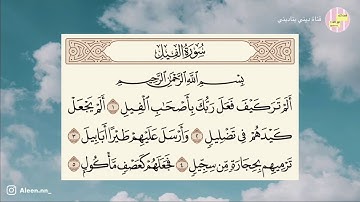 قناة ديني بناديني
سُورَةُ الفِيلِ
بِسْمِ اللَّهِ الرَّحْمَٰنِ الرَّحِيمِ
أَلَمْ تَرَ كَيْفَ فَعَلَ رَبُّكَ بِأَصْحَابِ الْفِيلِ ١ أَلَمْ يَجْعَلْ
كَيْدَهُمْ فِي تَضْلِيلٍ ٢ وَأَرْسَلَ عَلَيْهِمْ طَيْرًا أَبَابِيلَ ٣
تَرْمِيهِم بِحِجَارَةٍ مِّن سِجِّيلٍ ٤ فَجَعَلَهُمْ كَعَصْفٍ مَّأْكُولٍ ٥
Aleen.nn_